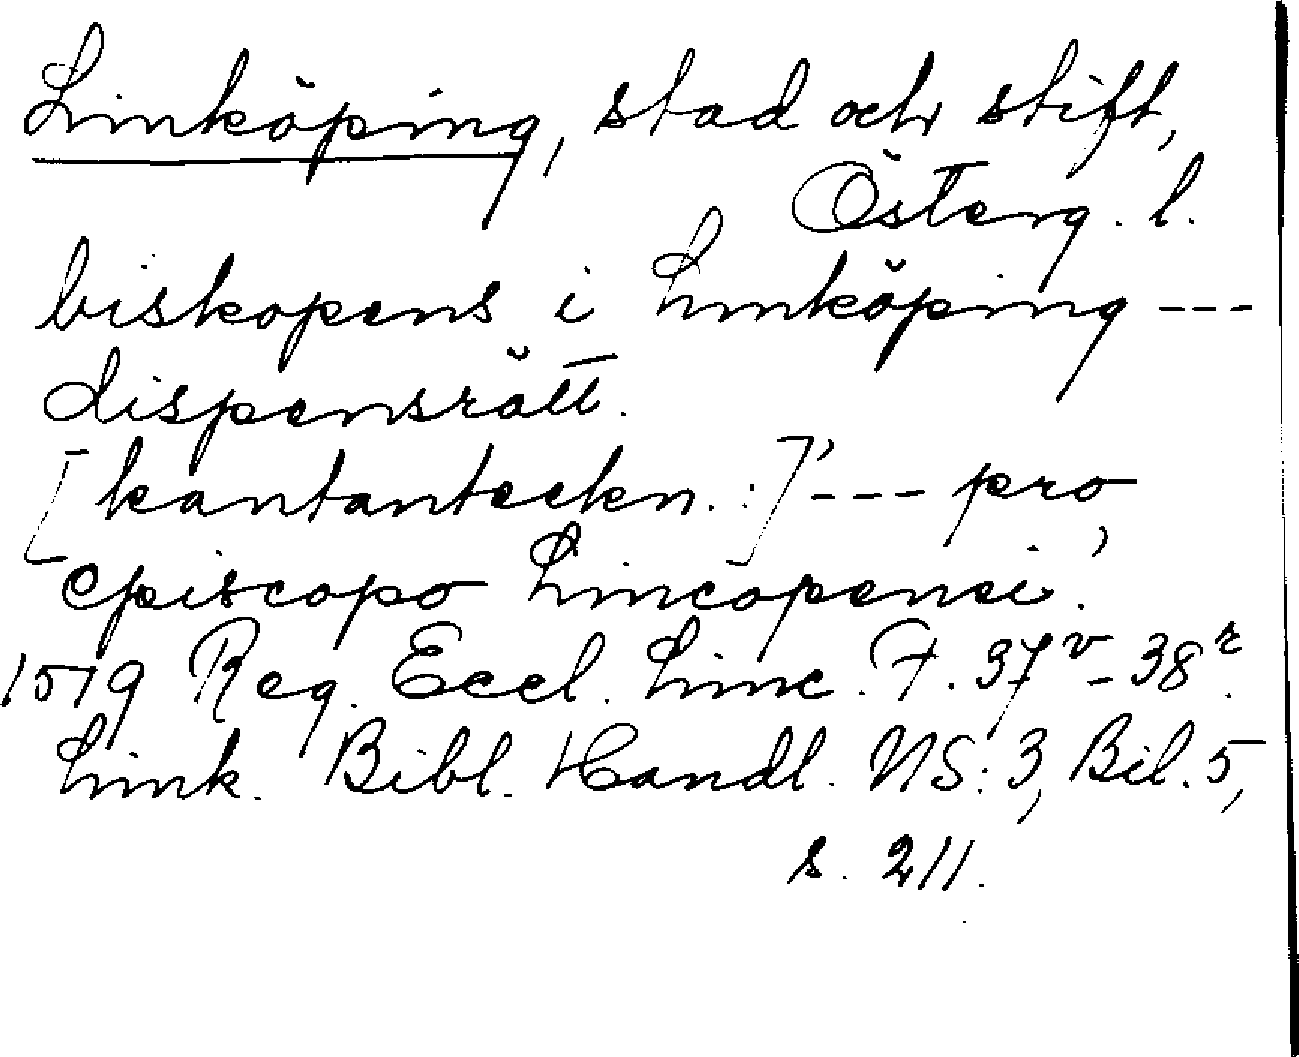 Linköping, stad och stift,
Österg. l.
biskopens i Linköping ---
dispensrätt.
[kantanteckn.:] '--- pro
episcopo Lincopensi'.
1519 Reg. Eccl. Linc. F. 37v-38r.
Link. Bibl. Handl. NS: 3, Bil. 5,
s. 211.